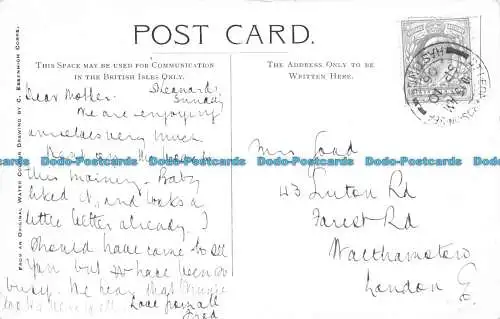 POST CARD.
THIS SPACE MAY BE USED FOR COMMUNICATION
IN THE BRITISH ISLES ONLY.
THE ADDRESS ONLY TO BE
WRITTEN HERE.
FROM AN ORIGINAL WATER COLOUR DRAWING BY C. ESSENHIGH CORKE.
St Leonards
Sunday
Dear Mother
We are enjoying
ourselves very much
this morning. Baby
liked it, and looks a
little better already. I
should have come to see
you but have been so
busy. We hear that
Love from all
Fred
Mrs
43 Luton Rd
Forest Rd
Walthamstow
London E.
HASTINGS
Dodo-Postcards Dodo-Postcards Dodo-Postcards Dodo-Postcards
Dodo-Postcards Dodo-Postcards Dodo-Postcards Dodo-Postcards
Dodo-Postcards Dodo-Postcards Dodo-Postcards Dodo-Postcards